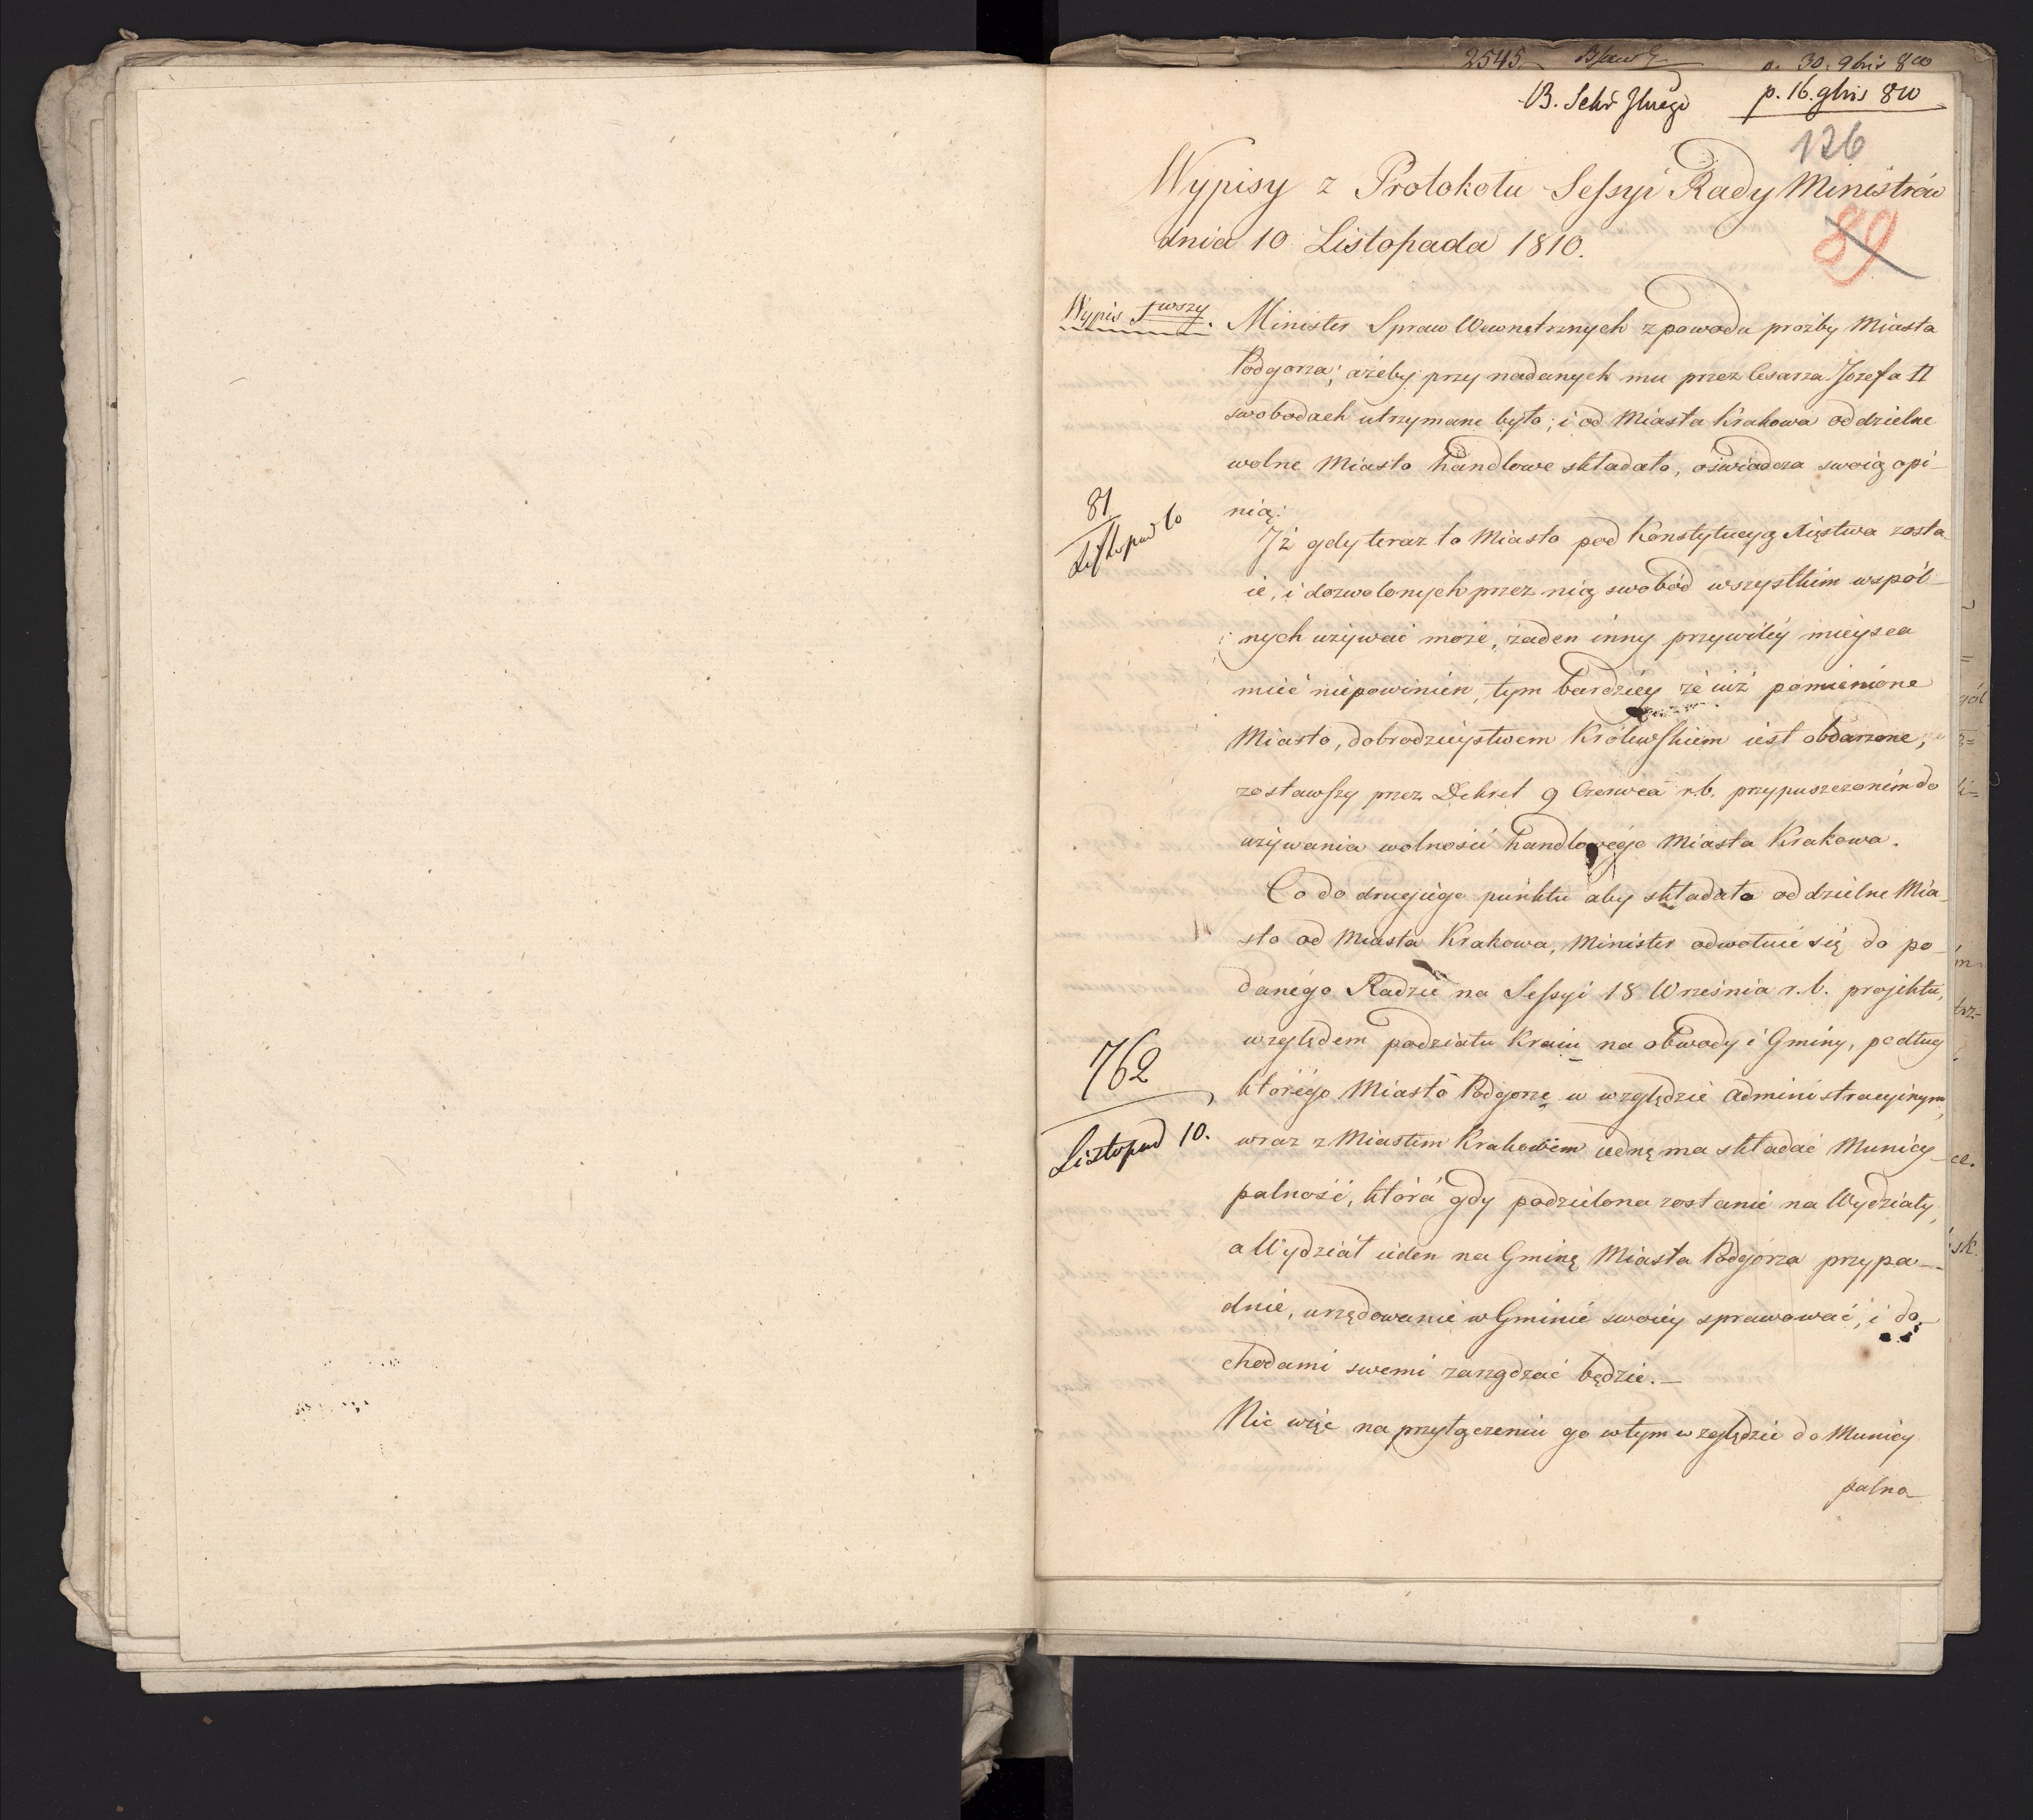 2545.
p. 30. 9bris 810
p. 16. 9bris 810
126
Wypisy z Protokołu Sessyi Rady Ministrów
dnia 10 Listopada 1810.
89
Wypis 1wszy.
Minister Spraw Wewnętrznych z powodu prożby Miasta
Podgorza; ażeby przy nadanych mu przez Cesarza Jozefa II
swobodach utrzymane było; i od Miasta Krakowa oddzielne
wolne Miasto handlowe składało, oświadcza swoią opi-
nią:
81
Listopad 10
Iż gdy teraz to Miasto pod Konstytucyą Xięstwa zosta-
ie, i dozwolonych przez nią swobód wszystkim wspól-
nych używać może, żaden inny przywiley mieysca
mieć niepowinien, tym bardziey że iuż pomienione
Miasto, dobrodzieystwem Królewskiem iest obdarzone,
zostawszy przez Dekret 9 Czerwca r.b. przypuszczonem do
używania wolności handlowégo Miasta Krakowa.
Co do drugiego punktu aby składało oddzielne Mia-
sto od Miasta Krakowa, Minister odwołuie się do po-
danégo Radzie na Sessyi 18 Września r.b. projektu,
względem podziału Kraiu na obwody i Gminy, podług
762
Listopad 10.
którego Miasto Podgorze w względzie administracyinym,
wraz z Miastem Krakowem iednę ma składać Municy-
palność, która gdy podzielona zostanie na Wydziały,
a Wydział ieden na Gminę Miasta Podgórza przypa-
dnie, urzędowanie w Gminie swoiey sprawować, i do-
chodami swemi zarządzać będzie.—
Nic więc na przyłączeniu go w tym względzie do Municy
palno-